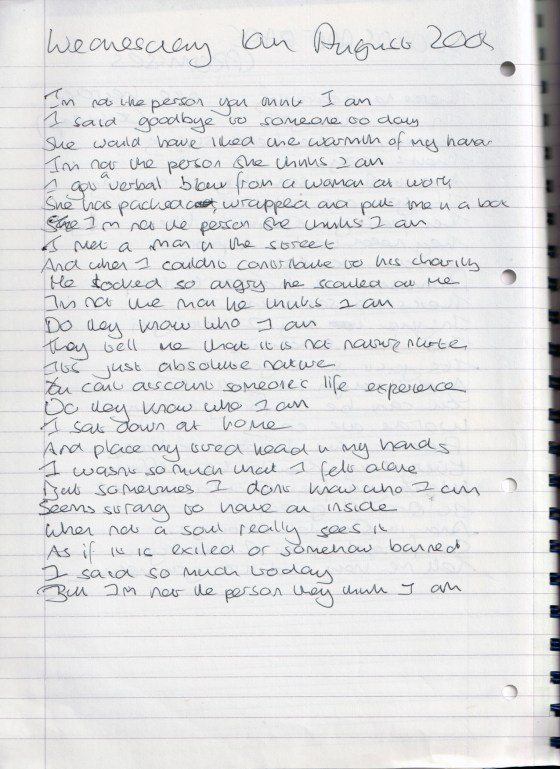 Wednesday August 200
I'm not the person you think I am
I said goodbye to someone to day
She would have liked the warmth of my hand
I'm not the person she thinks I am
I got a verbal blow from a woman at work
She has packed, wrapped and put me in a box
I'm not the person she thinks I am
I met a man in the street
And when I couldn't contribute to his charity
He looked so angry he scowled at me
I'm not the man he thinks I am
Do they know who I am
They tell me that it is not nature, nurture
It's just absolute nature
You can't account someone's life experience
Do they know who I am
I sat down at home
And place my tired head in my hands
I wasn't so much that I felt alone
But sometimes I don't know who I am
Seems strang to have an inside
When not a soul really sees it
As if it is exiled or somehow banned
I said so much today
But I'm not the person they think I am